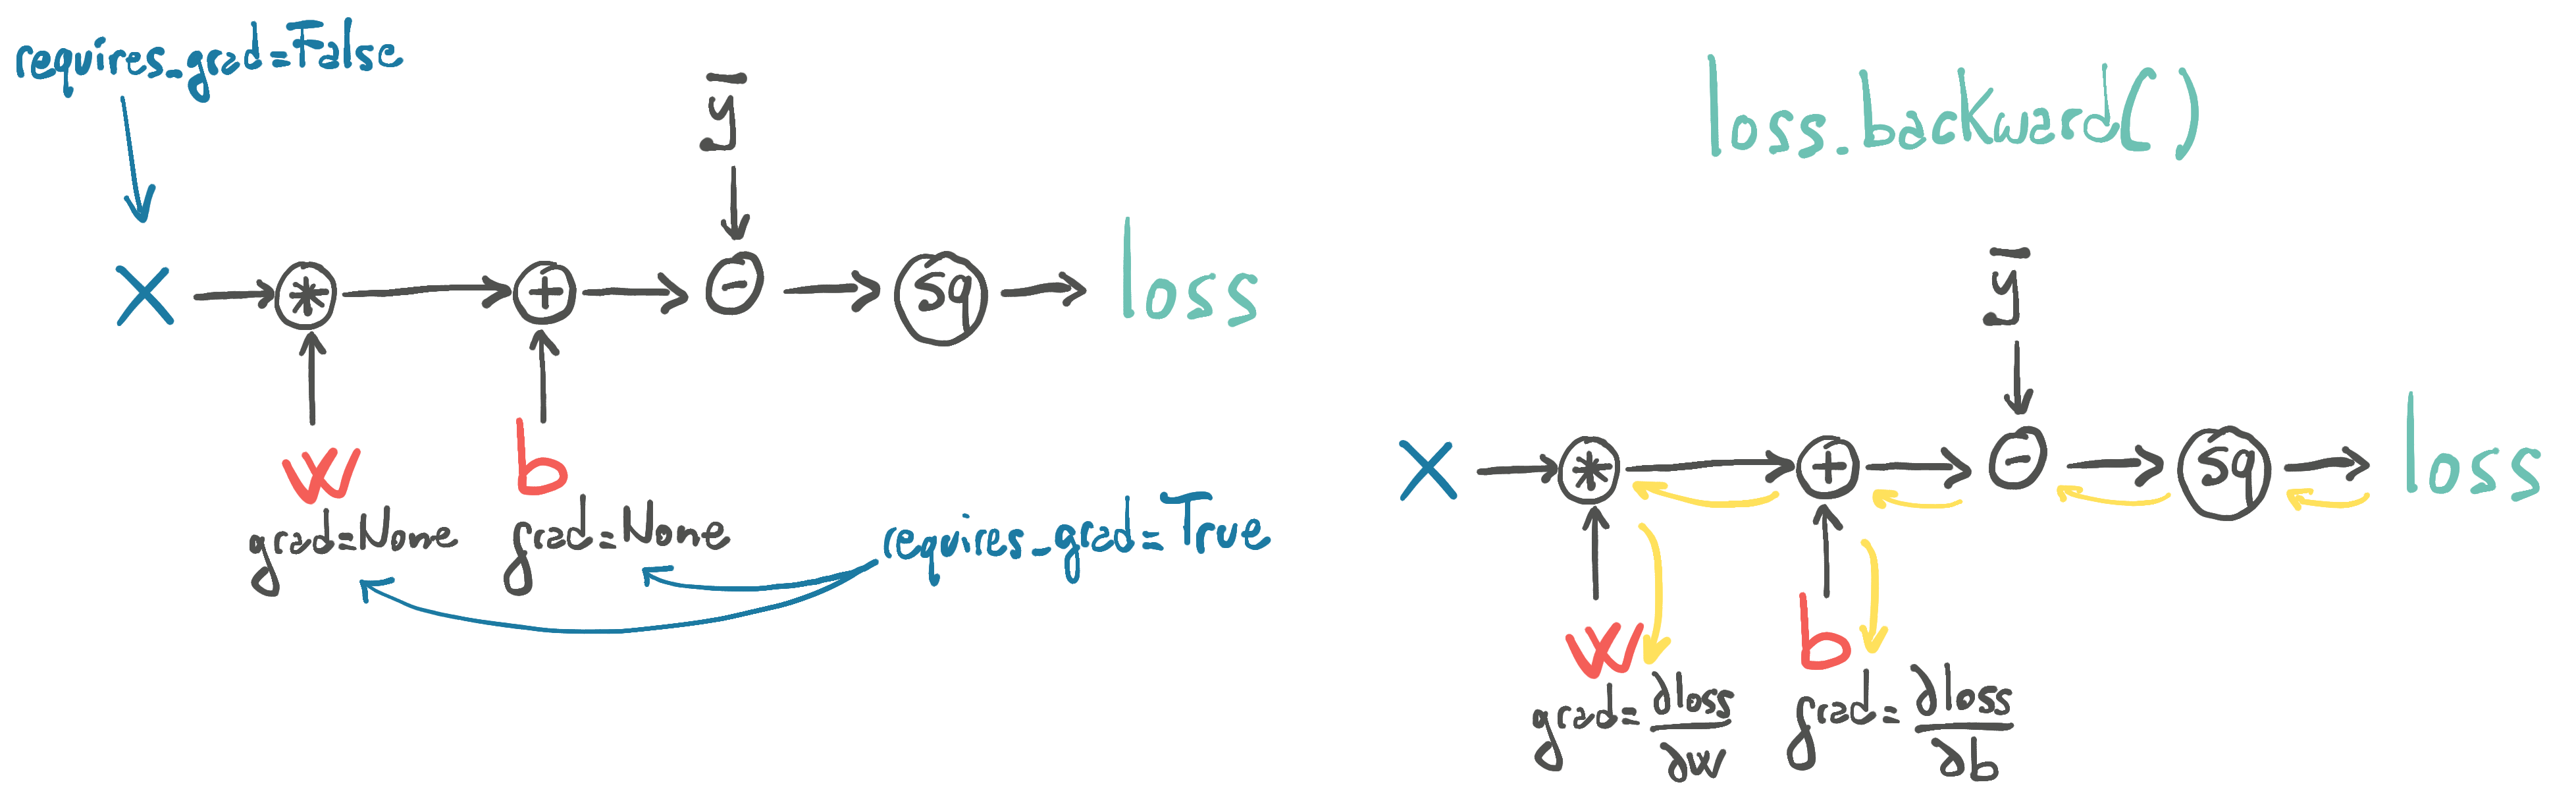 requires_grad=False
ȳ
X * + - sq loss
w b
grad=None grad=None
requires_grad=True
loss.backward()
ȳ
X * + - sq loss
w b
grad=∂loss/∂w grad=∂loss/∂b